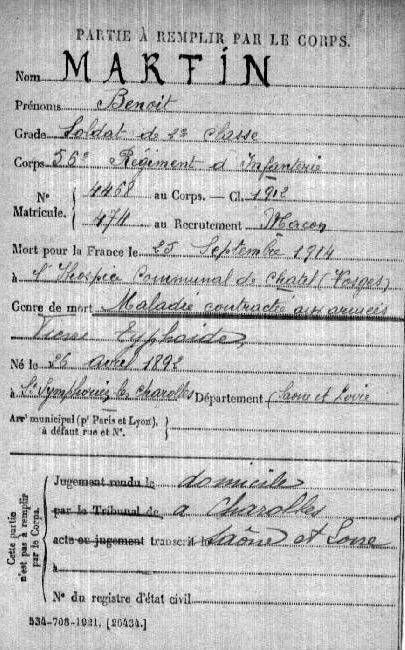 PARTIE À REMPLIR PAR LE CORPS.
Nom MARTIN
Prénoms Benoit
Grade Soldat de 2e classe
Corps 56e Régiment d'Infanterie
N° Matricule. { 4468 au Corps. — Cl. 1912
474 au Recrutement Macon
Mort pour la France le 25 Septembre 1914
à l'Hospice Communal de Chatel (Vosges)
Genre de mort Maladie contractée aux armées
Typhoide
Né le 26 avril 1892
à St Symphorien les Charolles Département Saone et Loire
Arrt municipal (pr Paris et Lyon), à défaut rue et N°. }
Cette partie n'est pas à remplir par le Corps. {
Jugement rendu le domicile
par le Tribunal de a Charolles
acte ou jugement transcrit le Saône et Loire
à
N° du registre d'état civil
534-708-1921. [26434.]